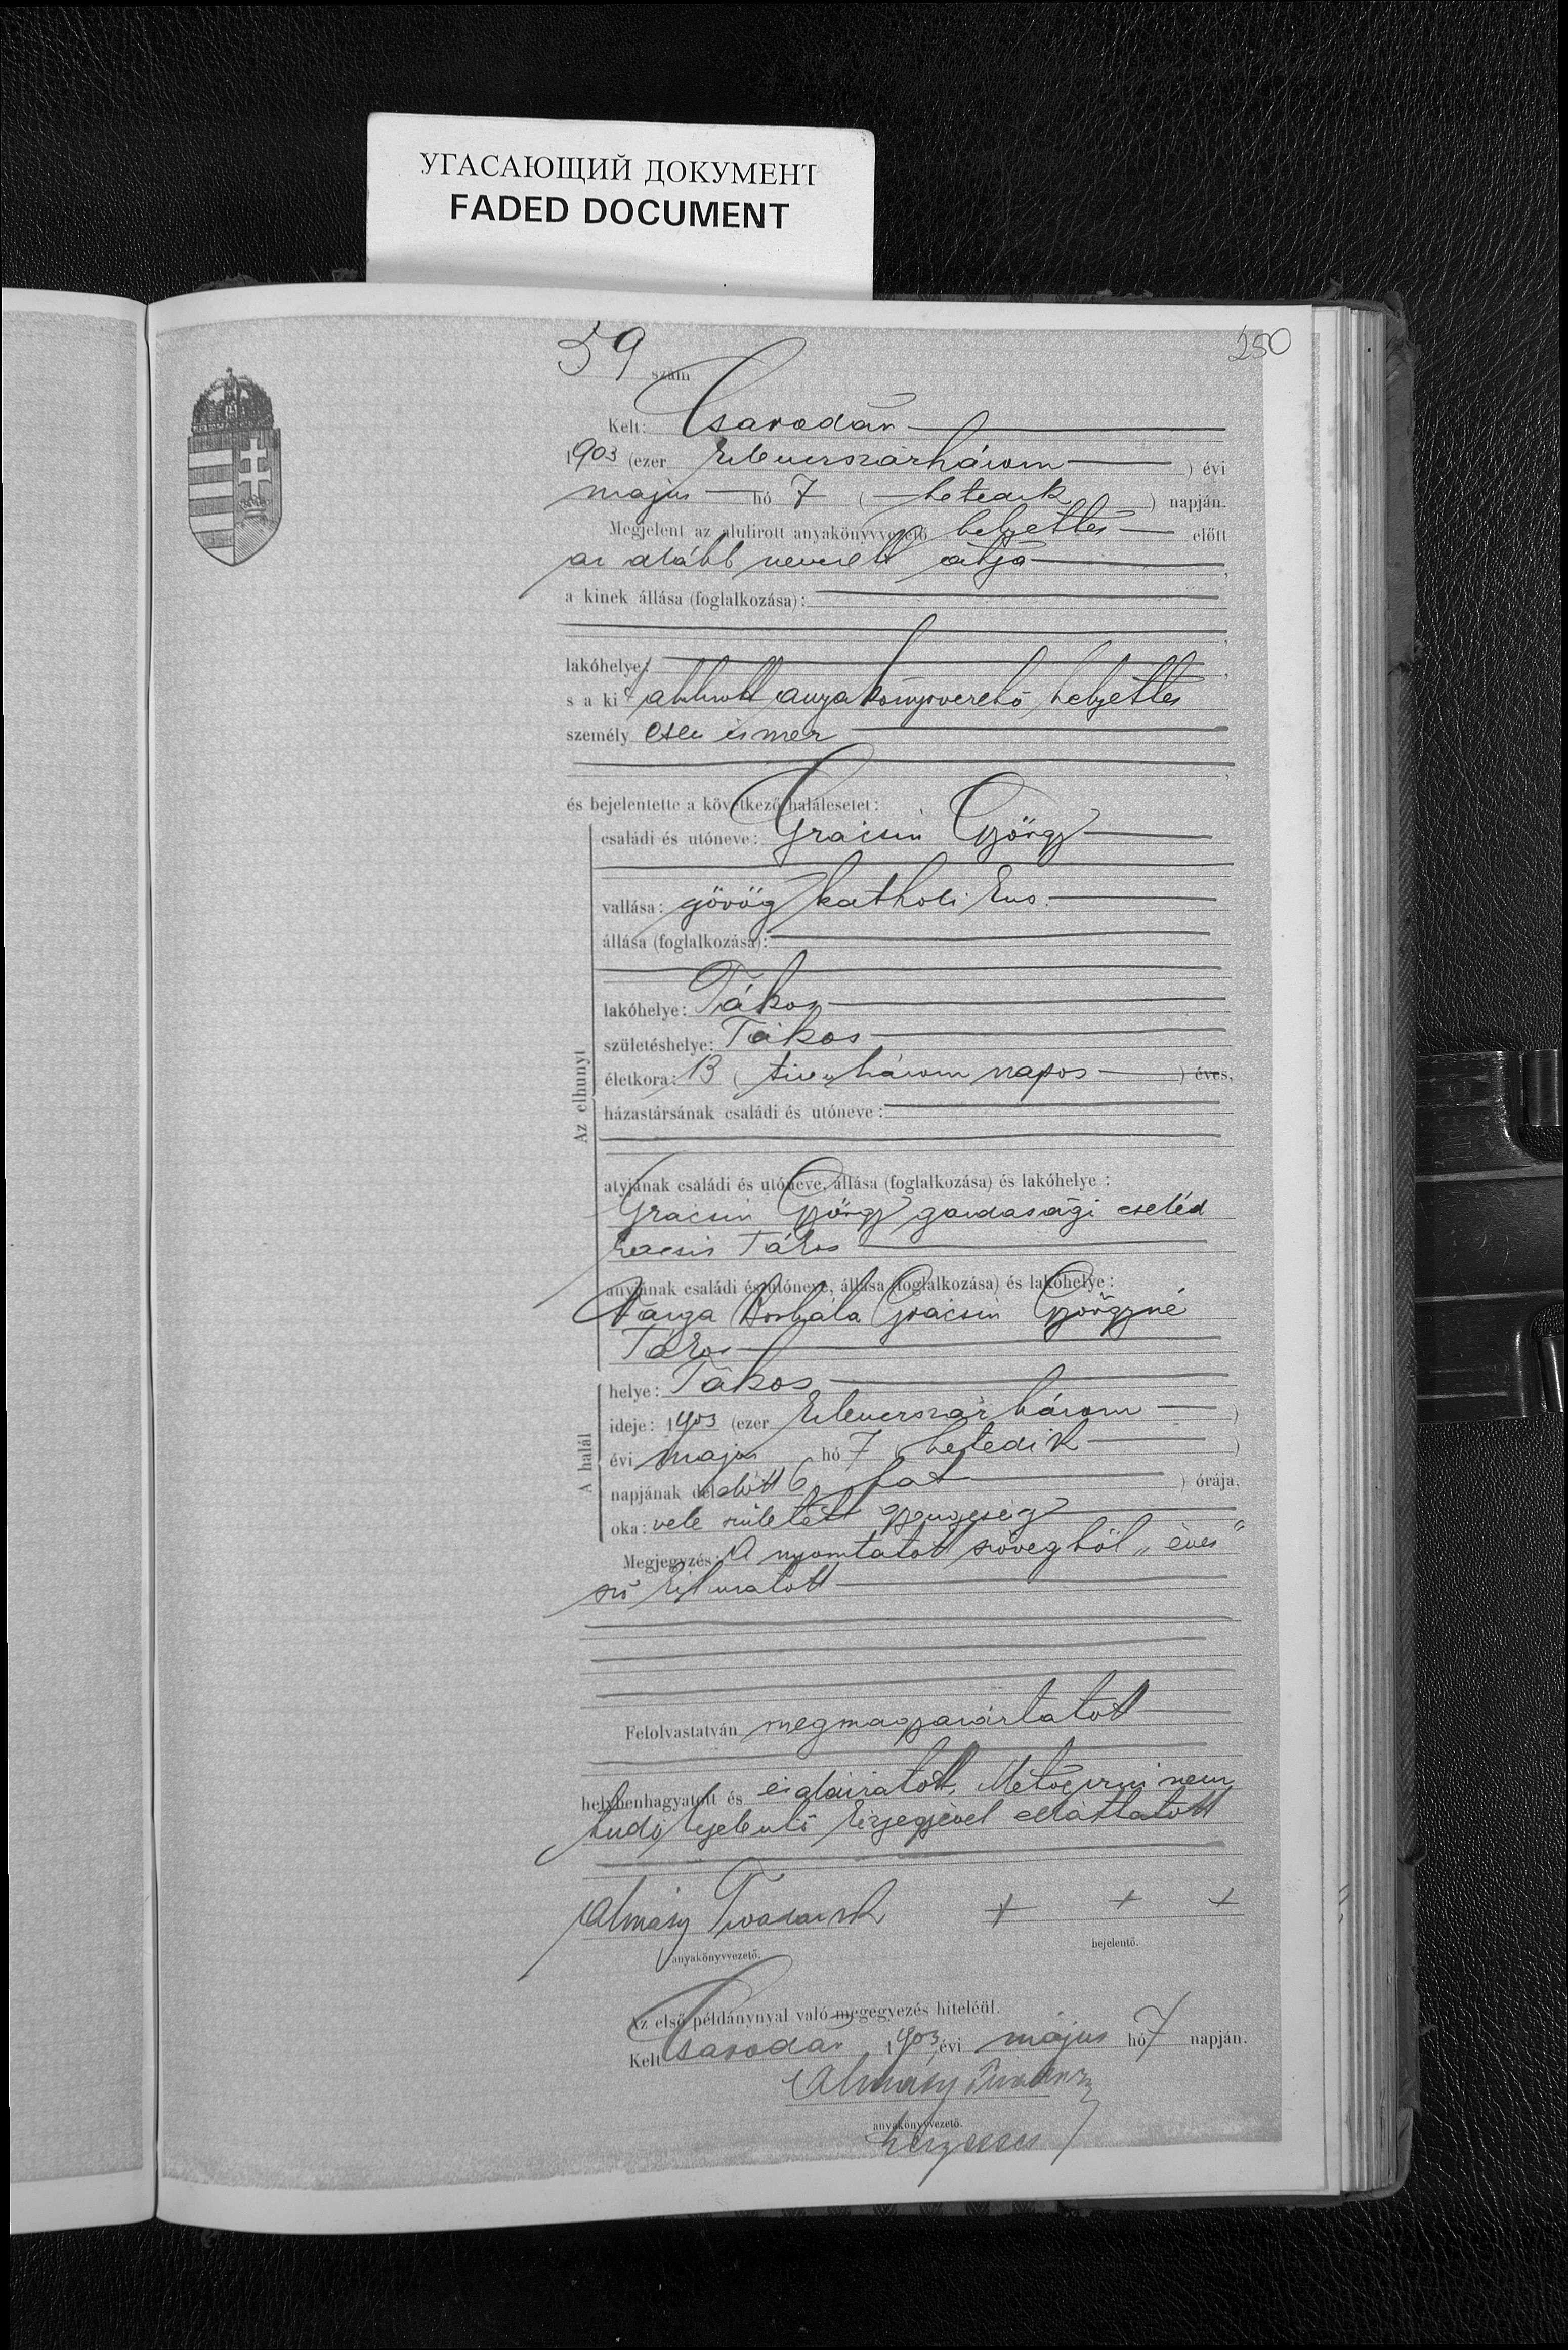 УГАСАЮЩИЙ ДОКУМЕНТ
FADED DOCUMENT
250
39 szám
Kelt: Csarodán
1903 (ezer kilencszázhárom) évi
május hó 7 (hetedik) napján.
Megjelent az alulirott anyakönyvvezető helyettes előtt
az alább nevezett atyja,
a kinek állása (foglalkozása):
lakóhelye:
s a kit alulirott anyakönyvvezető helyettes
személyesen ismer
és bejelentette a következő halálesetet:
Az elhunyt
családi és utóneve: Gracsin György
vallása: görög katholikus
állása (foglalkozása):
lakóhelye: Tákos
születéshelye: Tákos
életkora: 13 (tizenhárom napos) éves,
házastársának családi és utóneve:
atyjának családi és utóneve, állása (foglalkozása) és lakóhelye:
Gracsin György gazdasági cseléd
Tákos
anyjának családi és utóneve, állása (foglalkozása) és lakóhelye:
Varga Borbála Gracsin Györgyné
Tákos
A halál
helye: Tákos
ideje: 1903 (ezer kilencszázhárom)
évi május hó 7 (hetedik)
napjának délelőtt 6 (hat) órája.
oka: vele született gyengeség
Megjegyzés: A nyomtatott szövegből „éves"
szó kihuzatott
Felolvastatván, megmagyaráztatott
helybenhagyatott és aláiratott,
tudó bejelentő kézjegyével elláttatott
Almásy Tivadar
anyakönyvvezető.
+ + +
bejelentő.
Az első példánynyal való megegyezés hiteléül.
Kelt Csarodán 1903 évi május hó 7 napján.
Almásy Tivadar
anyakönyvvezető.
helyettes